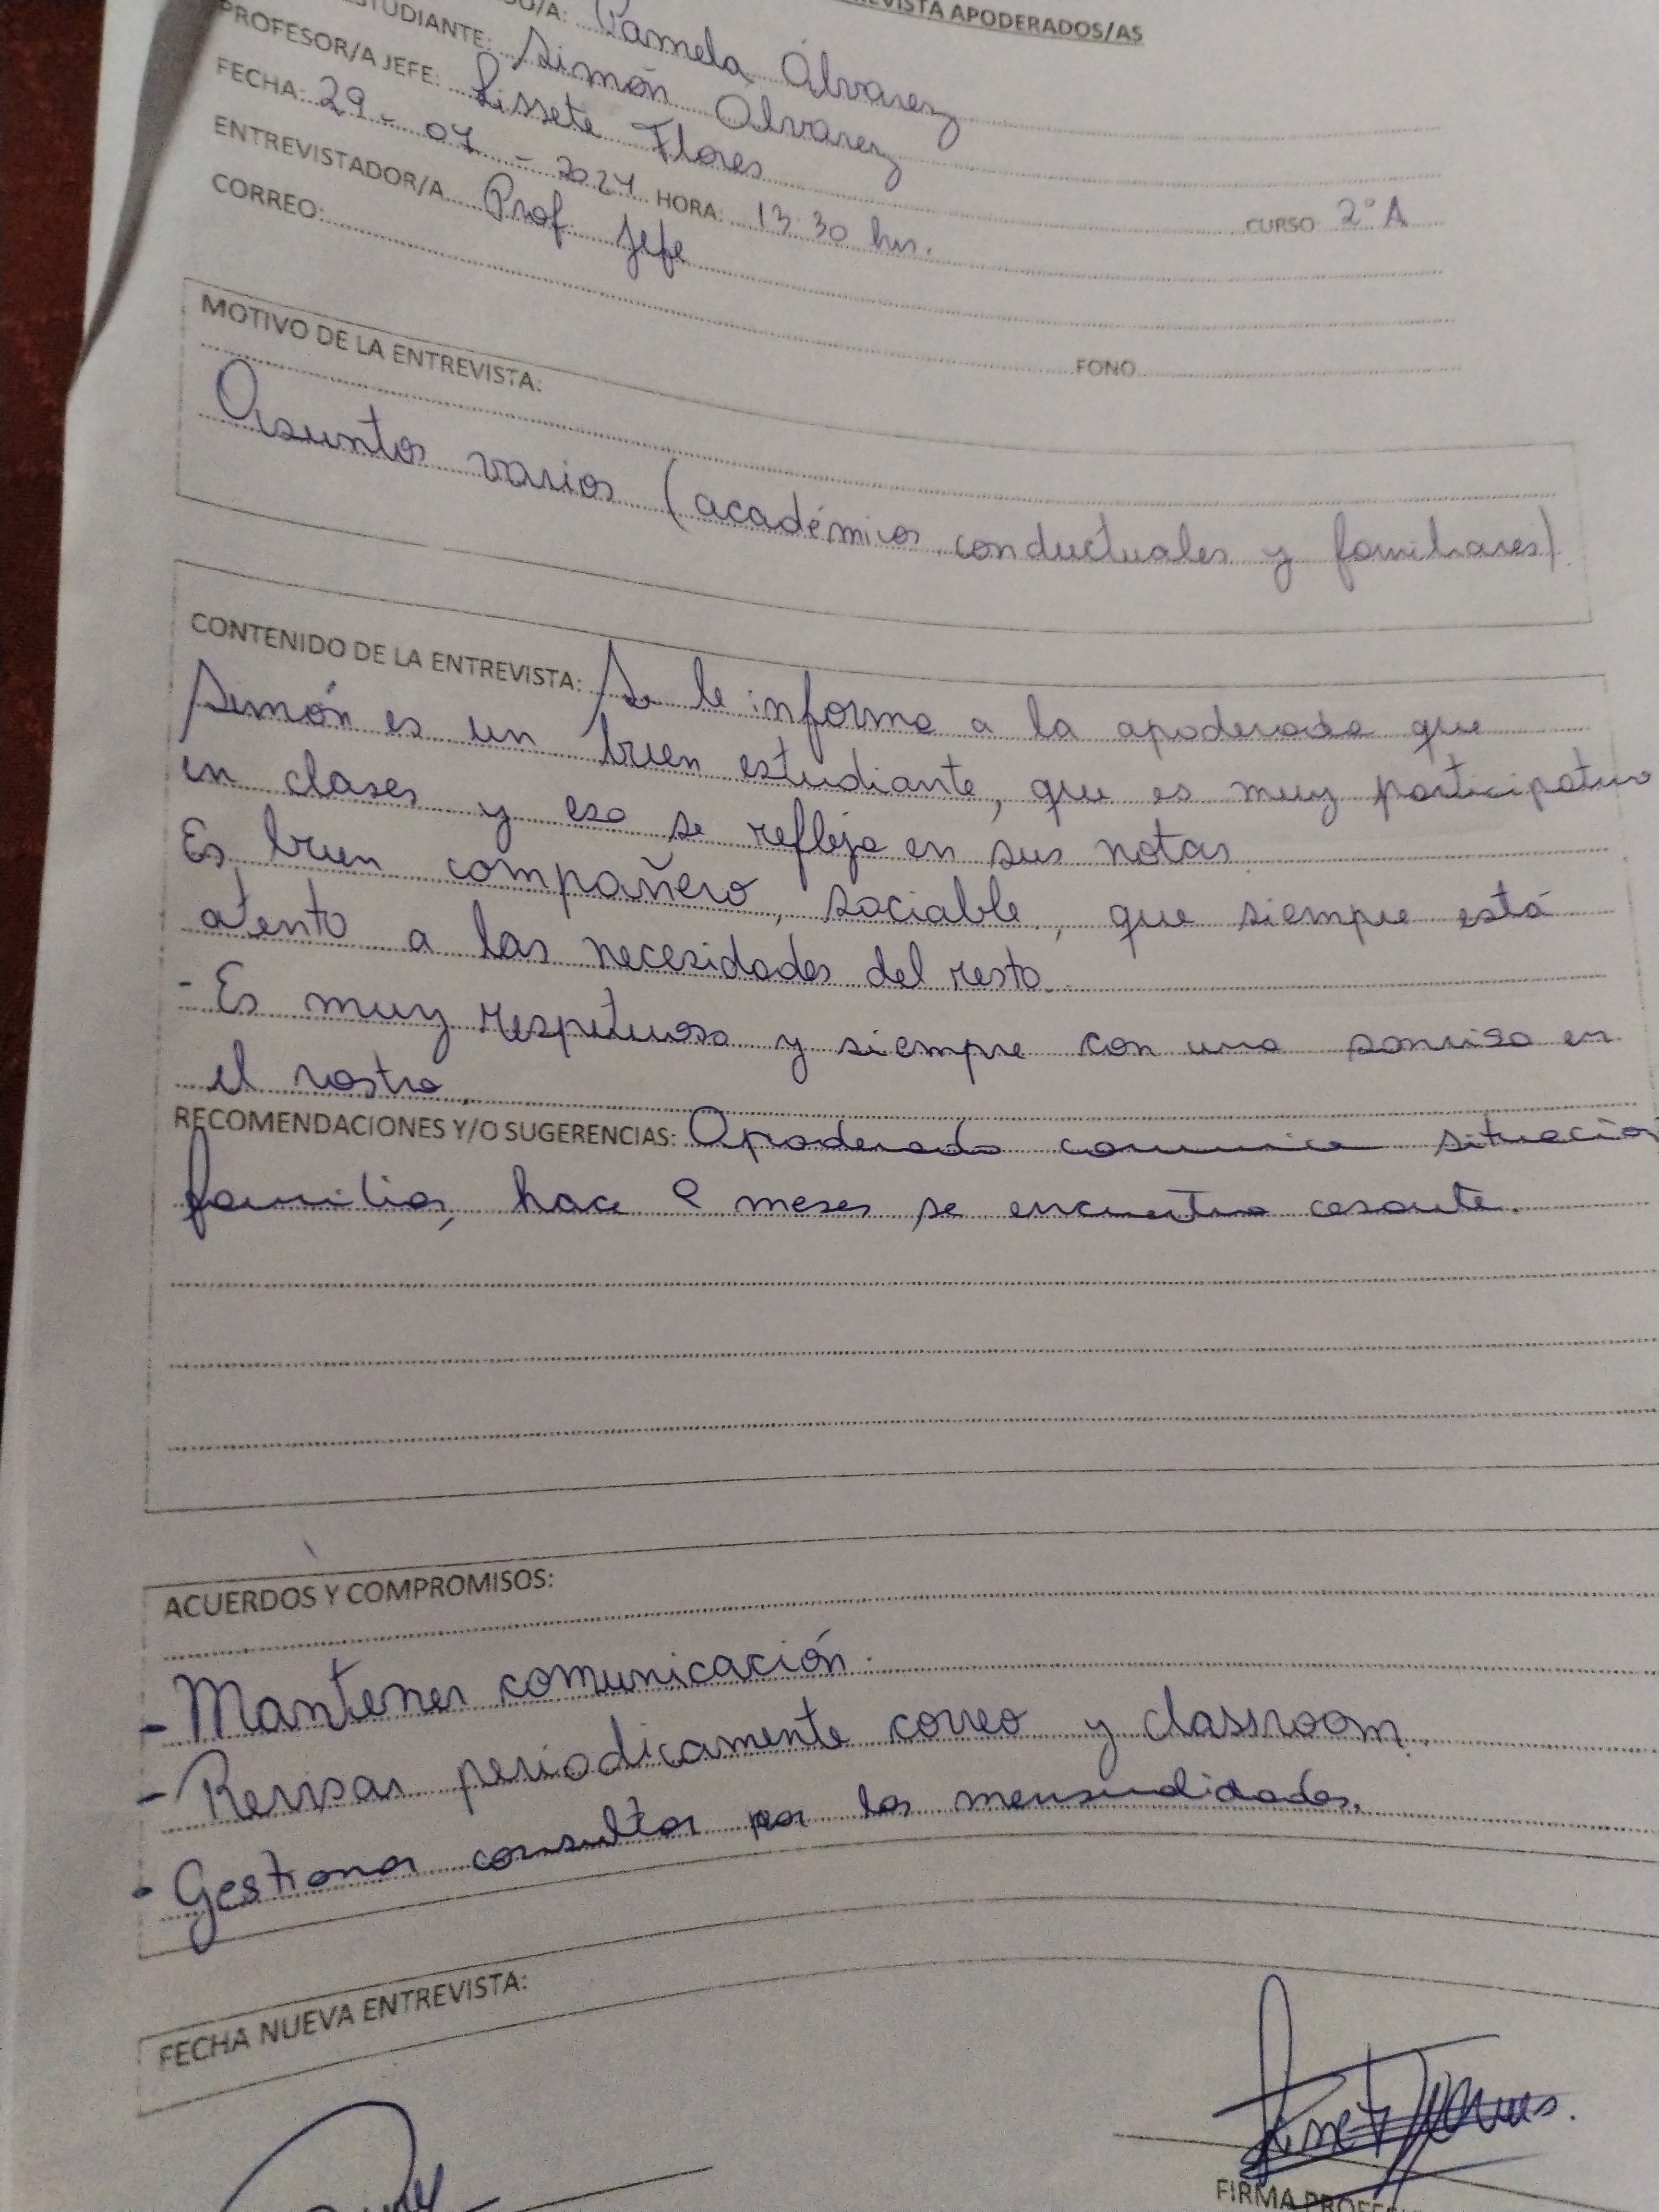 REVISTA APODERADOS/AS
DO/A: Pamela Álvarez
STUDIANTE: Simón Álvarez
PROFESOR/A JEFE: Lissete Flores CURSO 2°A
FECHA: 29-07-2024 HORA: 13:30 hrs.
ENTREVISTADOR/A Prof Jefe
CORREO: FONO
MOTIVO DE LA ENTREVISTA:
Asuntos varios (académicos, conductuales y familiares).
CONTENIDO DE LA ENTREVISTA: Se le informa a la apoderada que
Simón es un buen estudiante, que es muy participativo
en clases y eso se refleja en sus notas.
Es buen compañero, sociable, que siempre está
atento a las necesidades del resto.
- Es muy respetuoso y siempre con una sonrisa en
el rostro.
RECOMENDACIONES Y/O SUGERENCIAS: Apoderada comunica situación
familiar, hace meses se encuentra cesante.
ACUERDOS Y COMPROMISOS:
- Mantener comunicación.
- Revisar periodicamente correo y classroom.
- Gestionar consultar por las mensualidades.
FECHA NUEVA ENTREVISTA:
FIRMA PROFES